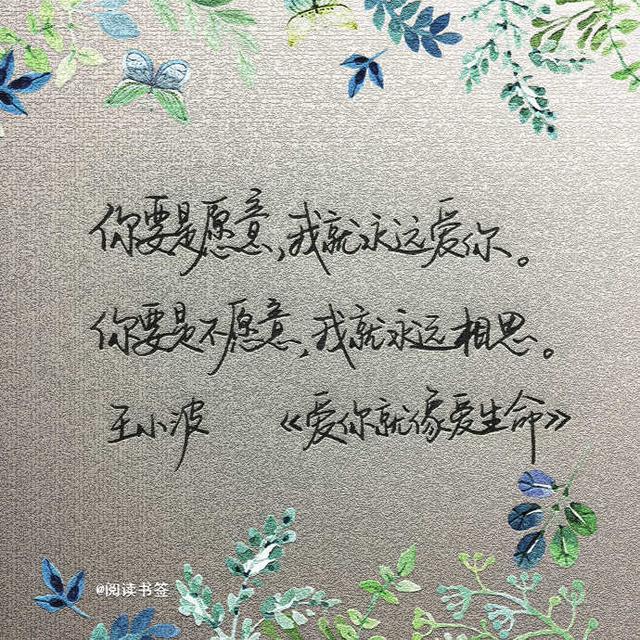 你要是愿意,我就永远爱你。
你要是不愿意,我就永远相思。
王小波 《爱你就像爱生命》
@阅读书签